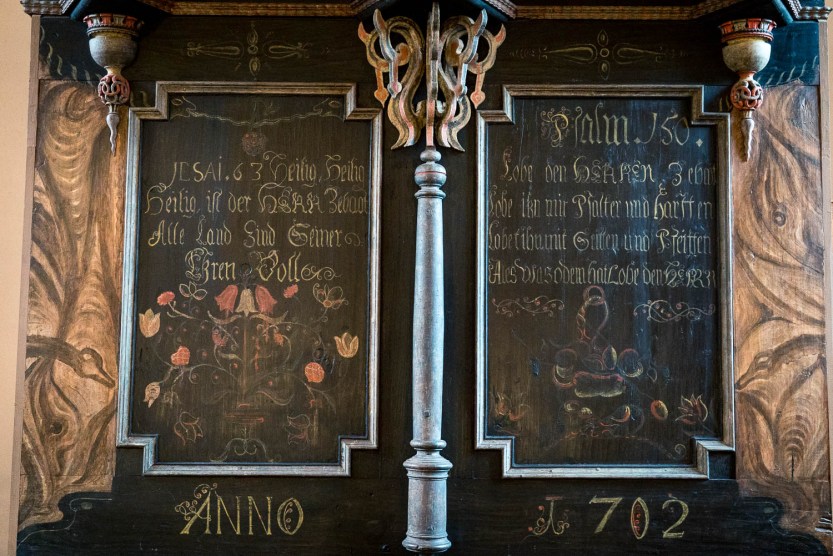 JESAi. 63 Heilig, Heilig
Heilig, ist der HERR Zebaot
Alle Land Sind Seiner
Eren Voll
Psalm. 150.
Lobe den HERREN, Zebaot
Lobe ihn mit Psalter und Harffen
Lobet ihn mit Seiten und Pfeiffen
Ales Was odem hat Lobe den HERRN
ANNO
1702